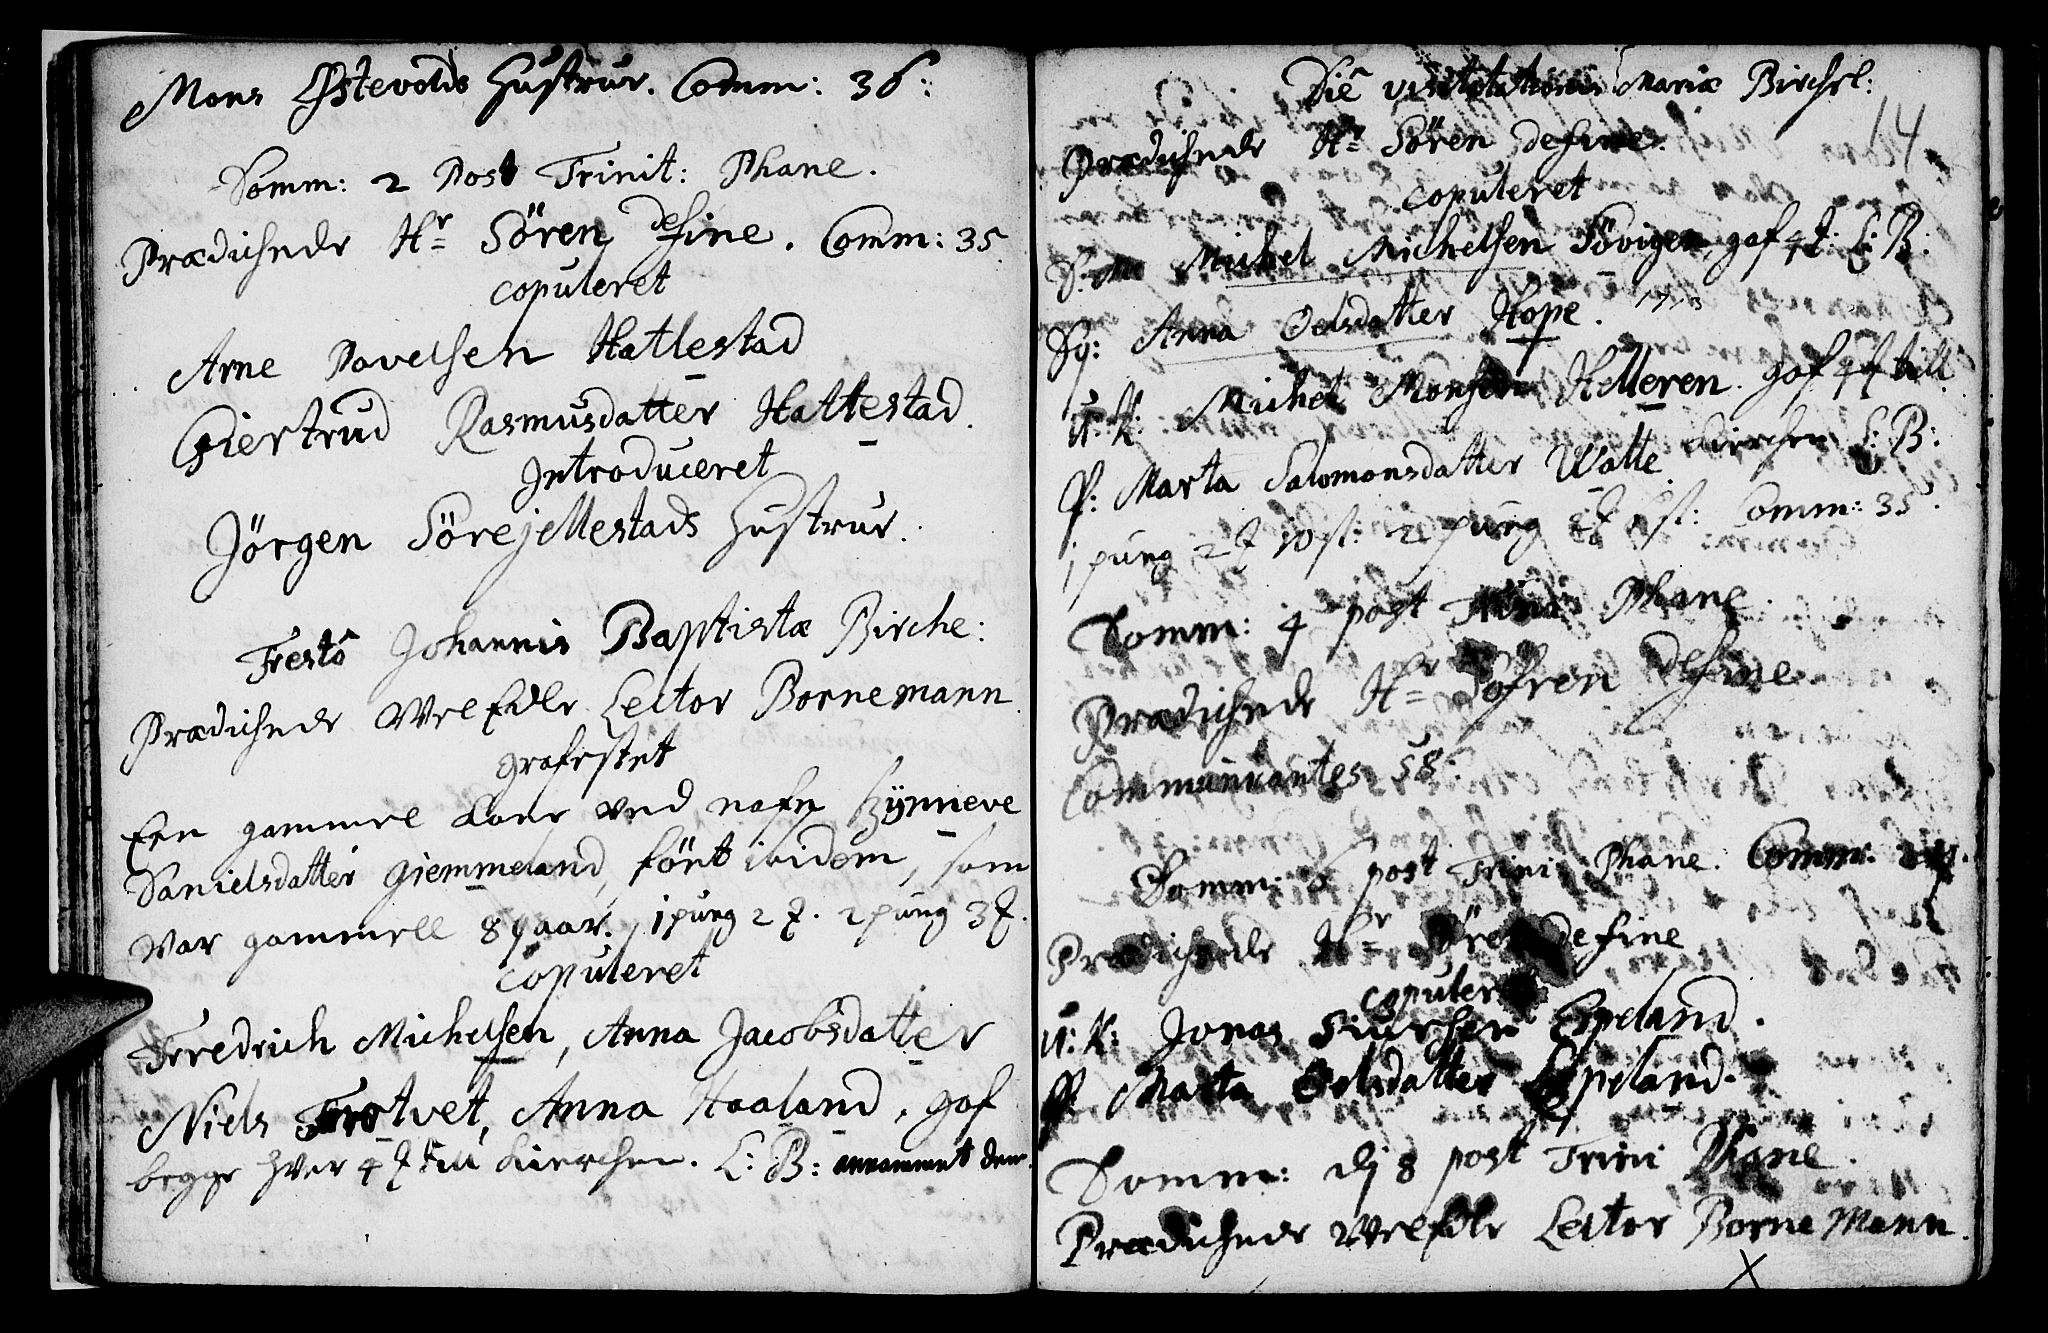 Mons Østevolds Hustrue. Comm: 36:
Domm: 2 Post Trinit: Phane.
Prædichede Hr Sören de fine. Comm: 35.
copuleret
Arne Povelsen Hatlestad
Giertrud Rasmusdatter Hattestad.
Introduceret
Jörgen Sörejellestads Hustrue.
Festo Johannis Baptistæ Birche:
Prædichede Welfdle Lector Bornemann
grafestet
Een gammel Kone ved nafn Synneve
Danielsdatter Giemmeland, fört ibidem, som
var gammell 89 aar. 1 pung 2 . 2 pung 3 .
Copuleret
Fredrich Michelsen, Anna Jacobsdatter
Niels Trotvet, Anna Haaland, gaf
begge hver 4 till Kierchen. L: B: annammet dem.
Die visitationis Mariæ Birchel:
14
Prædichede Hr Sören de fine.
copuleret
Michel Michelsen Sövigen, gaf 4 : L: B:
Py: Anna Oelsdatter Hope. 1713
U: K: Michel Monsen Helleren. gaf 4 till
P: Marta Salomonsdatter Watle Kierchen L: B:
1 pung 2 10 sl: 2 pung sl: Comm: 35.
Domm: 4 post Trini Phane.
Prædichede Hr Söfren de fine
Communicantes 58:
Domm: 6 post Trini Phane. Comm.
Prædichede Hr Sören de fine
copuler
U: K: Jonas Siursen Espeland.
P: Marta Oelsdatter Espeland.
Domm: dj 8 post Trini Phane.
Prædichede Welfdle Lector Borne Mann.
X